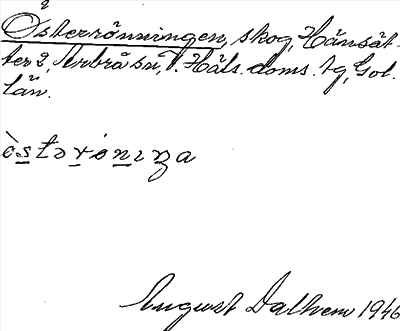 Österrönningen, skog, Hänsät-
ter 2, Arbrå sn, V. Häls. doms. tg, Gol.
län.
òstərónıŋa
August Dalhem 1946